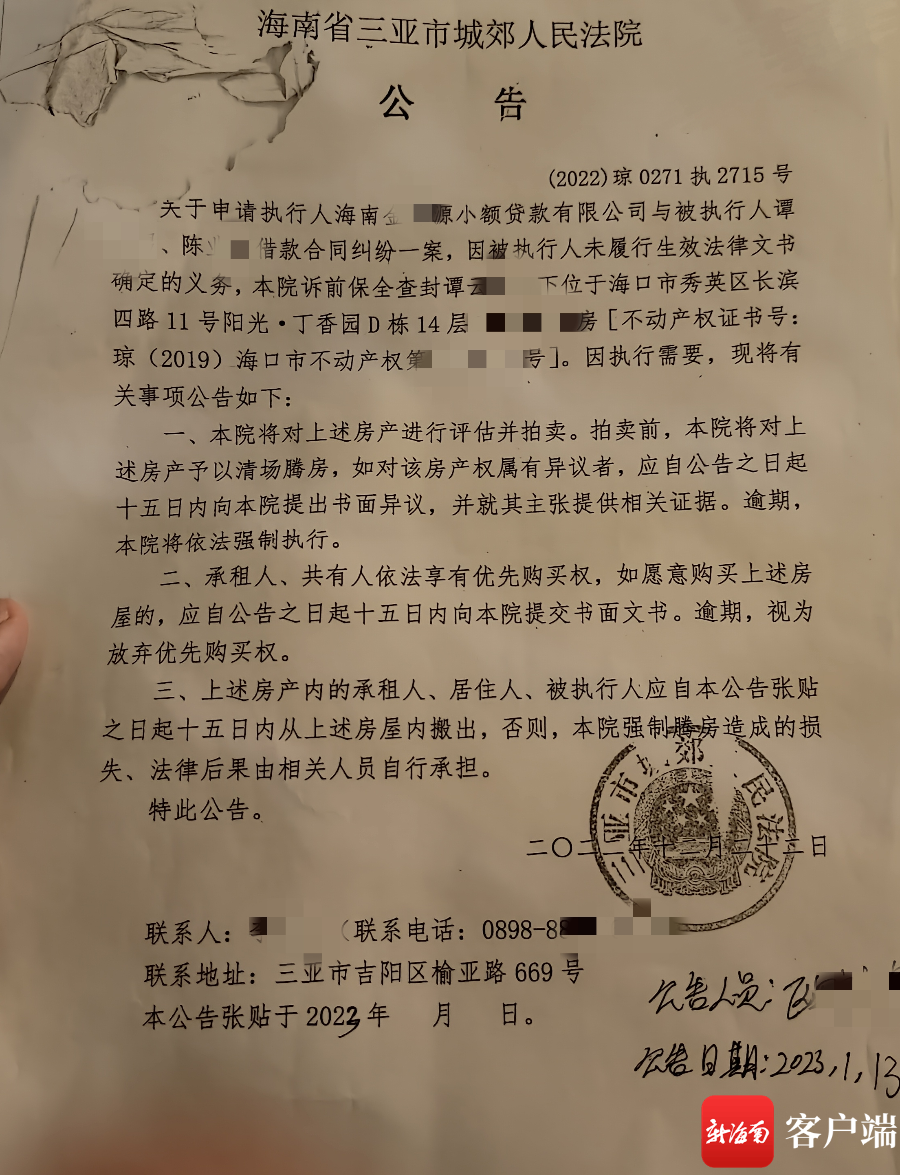 海南省三亚市城郊人民法院
公 告
(2022)琼0271执2715号
关于申请执行人海南金 源小额贷款有限公司与被执行人谭
、陈 借款合同纠纷一案，因被执行人未履行生效法律文书
确定的义务，本院诉前保全查封谭云 下位于海口市秀英区长滨
四路11号阳光·丁香园D栋14层 房[不动产权证书号：
琼（2019）海口市不动产权第 号]。因执行需要，现将有
关事项公告如下：
一、本院将对上述房产进行评估并拍卖。拍卖前，本院将对上
述房产予以清场腾房，如对该房产权属有异议者，应自公告之日起
十五日内向本院提出书面异议，并就其主张提供相关证据。逾期，
本院将依法强制执行。
二、承租人、共有人依法享有优先购买权，如愿意购买上述房
屋的，应自公告之日起十五日内向本院提交书面文书。逾期，视为
放弃优先购买权。
三、上述房产内的承租人、居住人、被执行人应自本公告张贴
之日起十五日内从上述房屋内搬出，否则，本院强制腾房造成的损
失、法律后果由相关人员自行承担。
特此公告。
三亚市城郊 民法院
二〇二二年十二月二十二日
联系人： （联系电话：0898-88
联系地址：三亚市吉阳区榆亚路669号
本公告张贴于2023年 月 日。
公告人员：
公告日期：2023,1,13
新海南 客户端